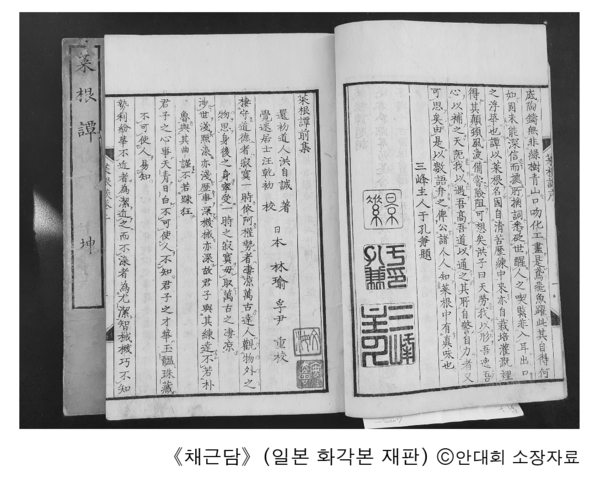 咸陶鎔無非綠樹青山口吻化工盡是鳶飛魚躍此其自得何
如固未能深信而據所摘詞悉砭世醒人之喫緊非入耳出口
之浮華也譚以菜根名固自清苦歷練中來亦自栽培灌溉裡
得其顛頓風波備嘗險阻可想矣洪子曰天勞我以形吾逸吾
心以補之天阨我以遇吾高吾道以通之其所自警自力者又
可思矣由是以數語弁之俾公諸人人知菜根中有真味也
三峰主人于孔兼題
菜根譚前集
還初道人洪自誠 著
覺迷居士汪乾初 校
日本 林瑜 孚尹 重校
棲守道德者寂寞一時依阿權勢者凄凉萬古達人觀物外之
物思身後之身寧受一時之寂寞毋取萬古之凄凉
涉世淺點染亦淺歷事深機械亦深故君子與其練達不若朴
魯與其曲謹不若疎狂
君子之心事天青日白不可使人不知君子之才華玉韞珠藏
不可使人易知
勢利紛華不近者為潔近之而不染者為尤潔智械機巧不知
菜根譚 坤
《채근담》 (일본 화각본 재판) ⓒ안대회 소장자료